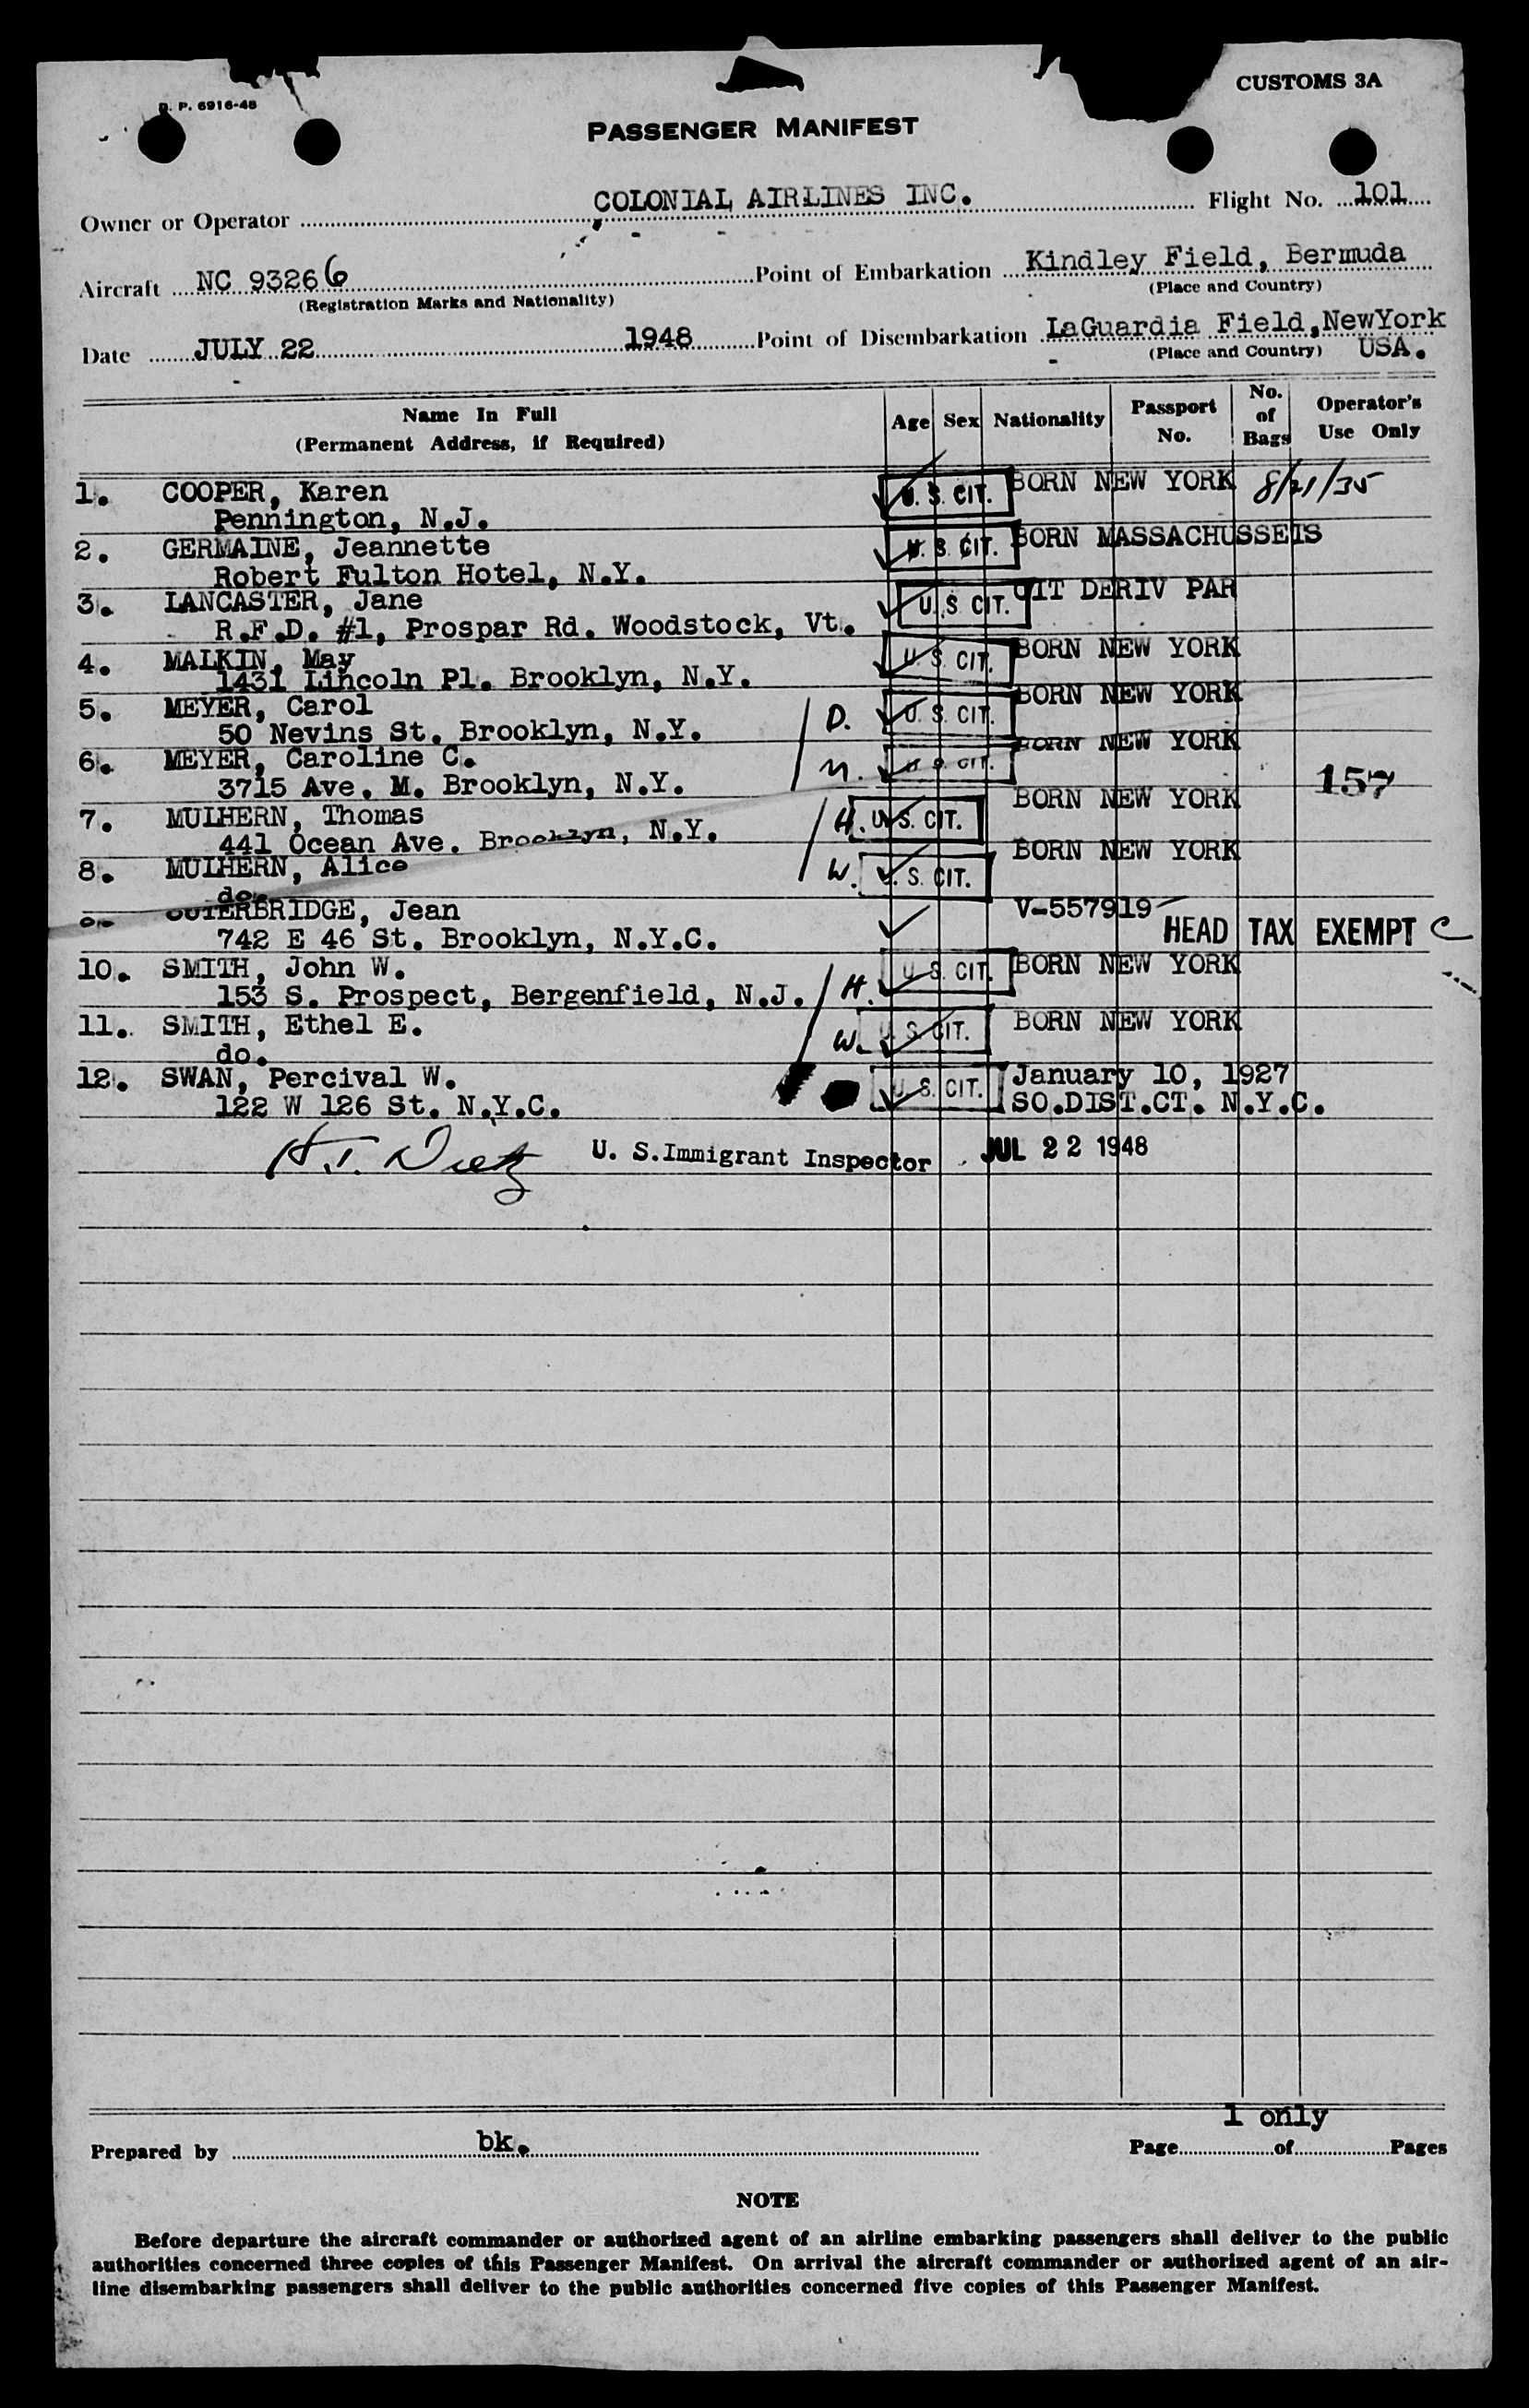 B. P. 6916-48
CUSTOMS 3A
PASSENGER MANIFEST
Owner or Operator COLONIAL AIRLINES INC. Flight No. 101
Aircraft NC 93266 Point of Embarkation Kindley Field, Bermuda
(Registration Marks and Nationality) (Place and Country)
Date JULY 22 1948 Point of Disembarkation LaGuardia Field,NewYork
(Place and Country) USA.
Name In Full (Permanent Address, if Required) Age Sex Nationality Passport No. No. of Bags Operator's Use Only
1. COOPER, Karen U. S. CIT. BORN NEW YORK 8/21/35
Pennington, N.J.
2. GERMAINE, Jeannette U. S. CIT. BORN MASSACHUSSETS
Robert Fulton Hotel, N.Y.
3. LANCASTER, Jane U. S. CIT. CIT DERIV PAR
R.F.D. #1, Prospar Rd. Woodstock, Vt.
4. MALKIN, May U. S. CIT. BORN NEW YORK
1431 Lincoln Pl. Brooklyn, N.Y.
5. MEYER, Carol D. U. S. CIT. BORN NEW YORK
50 Nevins St. Brooklyn, N.Y.
6. MEYER, Caroline C. M. U. S. CIT. BORN NEW YORK
3715 Ave. M. Brooklyn, N.Y. 157
7. MULHERN, Thomas H. U. S. CIT. BORN NEW YORK
441 Ocean Ave. Brooklyn, N.Y.
8. MULHERN, Alice W. U. S. CIT. BORN NEW YORK
do.
OUTERBRIDGE, Jean V-557919
742 E 46 St. Brooklyn, N.Y.C. HEAD TAX EXEMPT C
10. SMITH, John W. H. U. S. CIT. BORN NEW YORK
153 S. Prospect, Bergenfield, N.J.
11. SMITH, Ethel E. W. U. S. CIT. BORN NEW YORK
do.
12. SWAN, Percival W. U. S. CIT. January 10, 1927
122 W 126 St. N.Y.C. SO.DIST.CT. N.Y.C.
H. J. Dietz U. S. Immigrant Inspector JUL 22 1948
1 only
Prepared by bk. Page of Pages
NOTE
Before departure the aircraft commander or authorized agent of an airline embarking passengers shall deliver to the public
authorities concerned three copies of this Passenger Manifest. On arrival the aircraft commander or authorized agent of an air-
line disembarking passengers shall deliver to the public authorities concerned five copies of this Passenger Manifest.